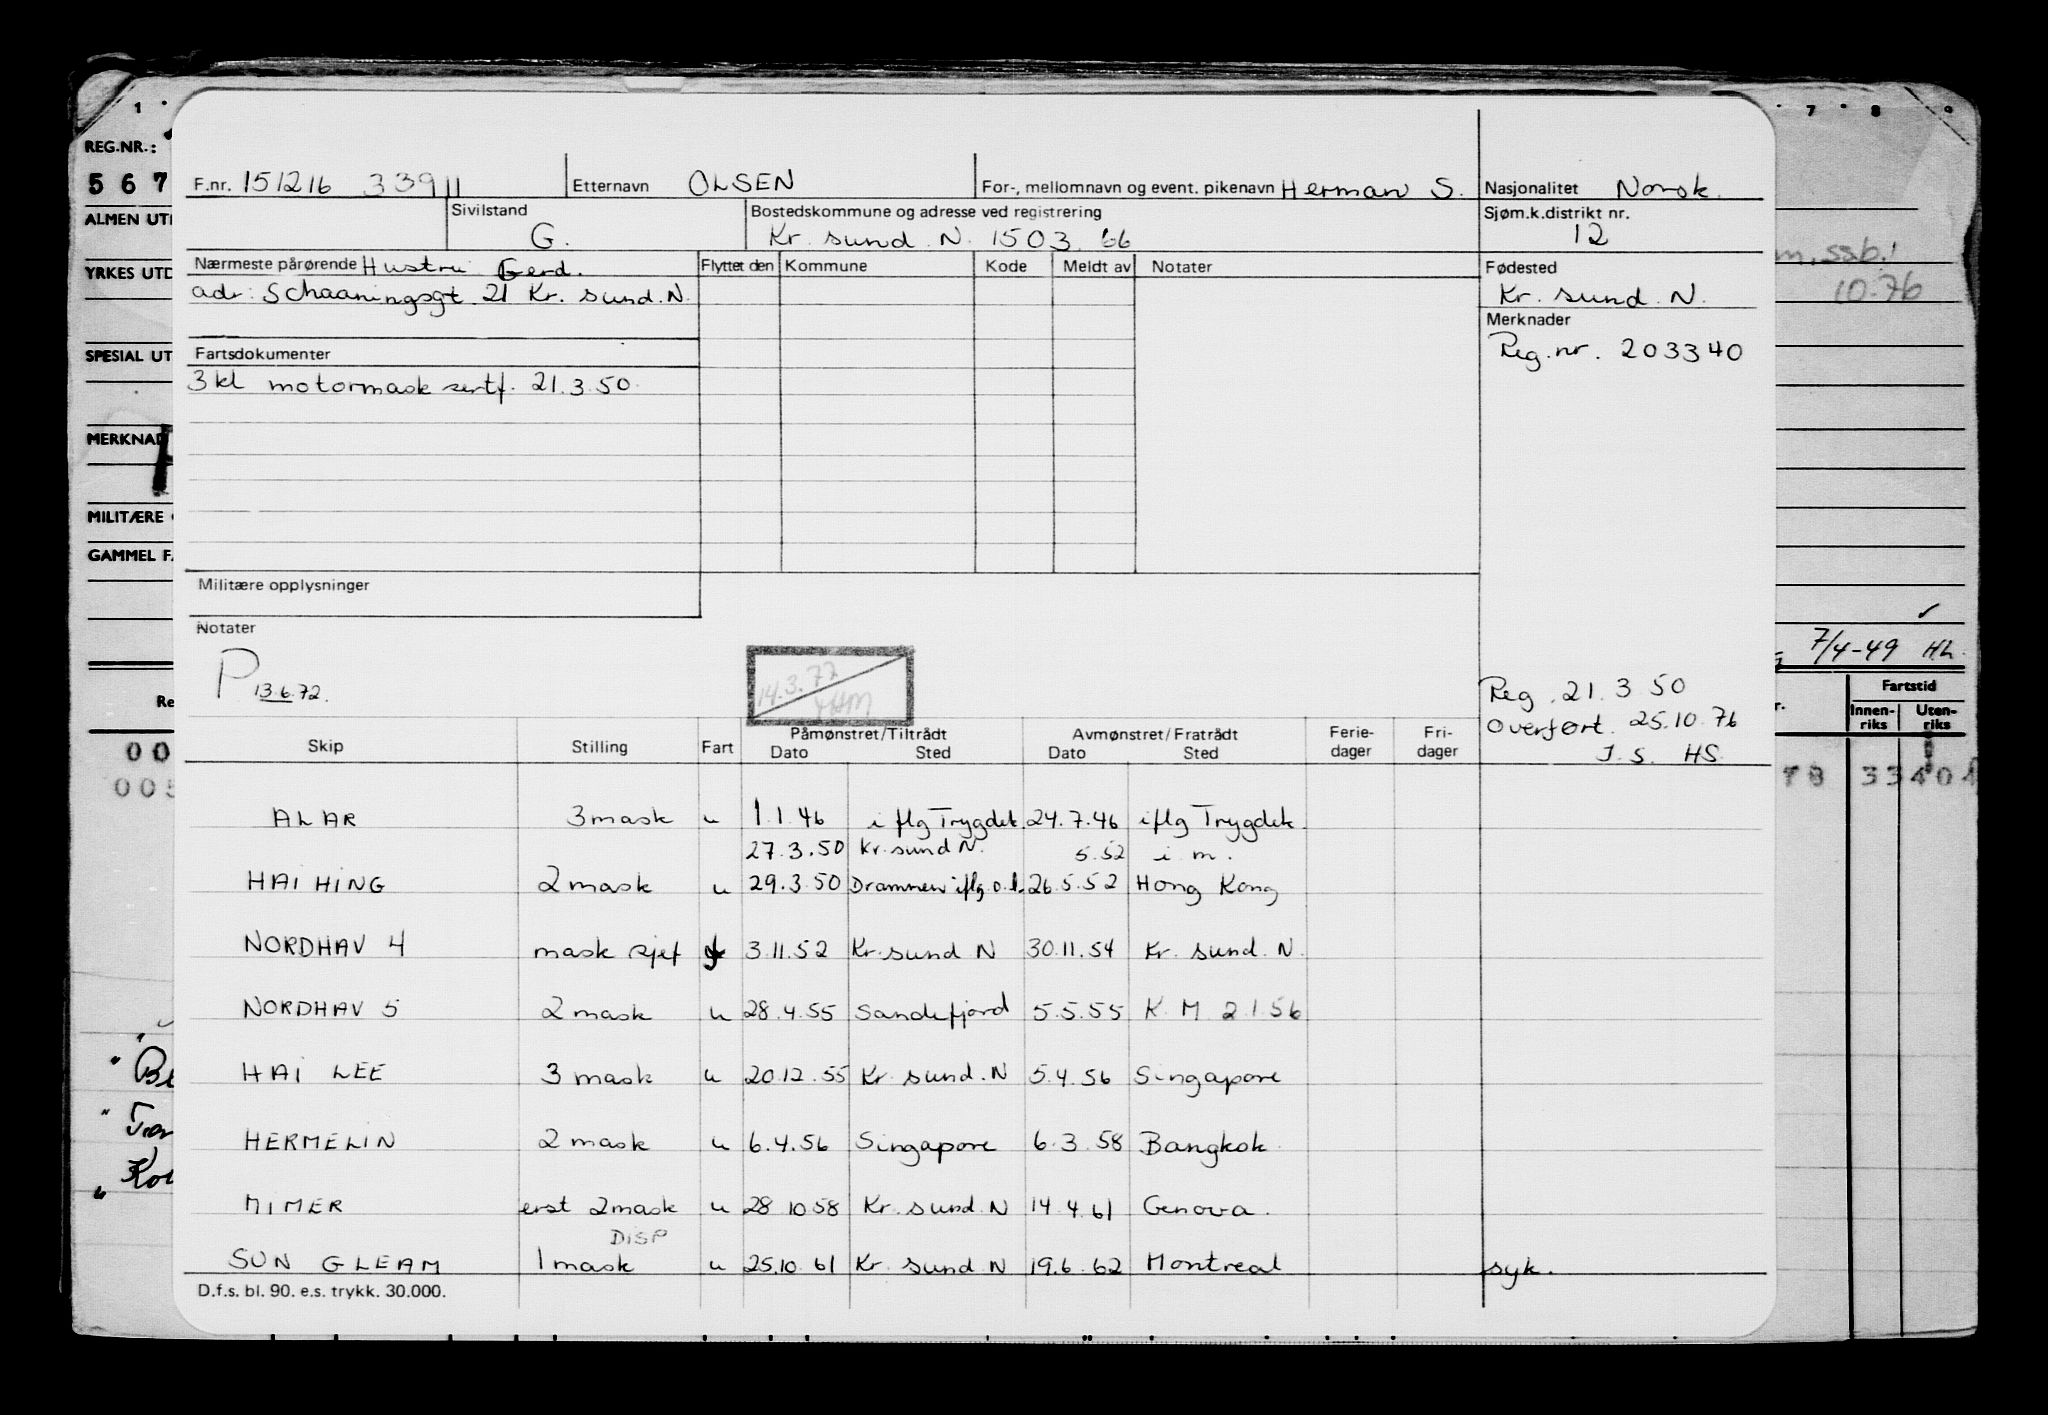 1 7 8 9
REG.NR.:
5 6 7
ALMEN UT
YRKES UTD
SPESIAL UT
MERKNAD
MILITÆRE
GAMMEL F
F.nr. 151216 33911 Etternavn OLSEN For-, mellomnavn og event. pikenavn Herman S. Nasjonalitet Norsk.
Sivilstand G. Bostedskommune og adresse ved registrering Kr. sund. N. 1503. '66 Sjøm.k.distrikt nr. 12
Nærmeste pårørende Hustru Gerd. Flyttet den Kommune Kode Meldt av Notater Fødested
adr: Schaaningsgt. 21 Kr. sund. N. Kr. sund. N.
Merknader
Fartsdokumenter Reg.nr. 203340
3 kl motormask sertf. 21.3.50.
Militære opplysninger
Notater
P 13.6.72.
14.3.77
Reg. 21.3.50
Overført. 25.10.76
J.S. HS.
Skip Stilling Fart Påmønstret/Tiltrådt Dato Sted Avmønstret/Fratrådt Dato Sted Ferie-dager Fri-dager
ALAR 3 mask u 1.1.46 i flg Trygdek. 24.7.46 iflg Trygdek.
27.3.50 Kr.sund N. 5.52 i m.
HAI HING 2 mask u 29.3.50 Drammen iflg o.l. 26.5.52 Hong Kong
NORDHAV 4 mask sjef 3.11.52 Kr.sund N 30.11.54 Kr. sund. N.
NORDHAV 5 2 mask u 28.4.55 Sandefjord 5.5.55 K M 2.1.56
HAI LEE 3 mask u 20.12.55 Kr. sund. N 5.4.56 Singapore
HERMELIN 2 mask u 6.4.56 Singapore 6.3.58 Bangkok.
MIMER erst 2 mask u 28.10.58 Kr. sund. N 14.4.61 Genova.
DISP
SUN GLEAM 1 mask u 25.10.61 Kr. sund N 19.6.62 Montreal syk.
D.f.s. bl. 90. e.s. trykk. 30.000.
m, ssb.
10.76
7/4-49 Hh.
Fartstid
Innen-riks Uten-riks
78 33401
Re
00
005